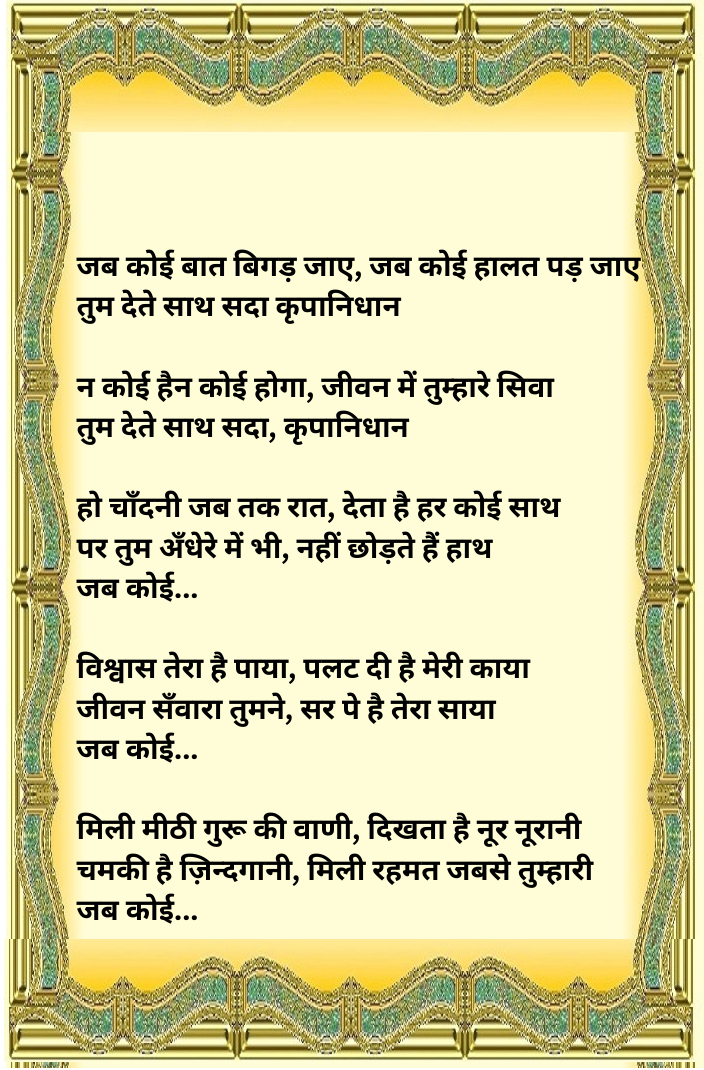 जब कोई बात बिगड़ जाए, जब कोई हालत पड़ जाए
तुम देते साथ सदा कृपानिधान
न कोई हैन कोई होगा, जीवन में तुम्हारे सिवा
तुम देते साथ सदा, कृपानिधान
हो चाँदनी जब तक रात, देता है हर कोई साथ
पर तुम अँधेरे में भी, नहीं छोड़ते हैं हाथ
जब कोई...
विश्वास तेरा है पाया, पलट दी है मेरी काया
जीवन सँवारा तुमने, सर पे है तेरा साया
जब कोई...
मिली मीठी गुरू की वाणी, दिखता है नूर नूरानी
चमकी है ज़िन्दगानी, मिली रहमत जबसे तुम्हारी
जब कोई...